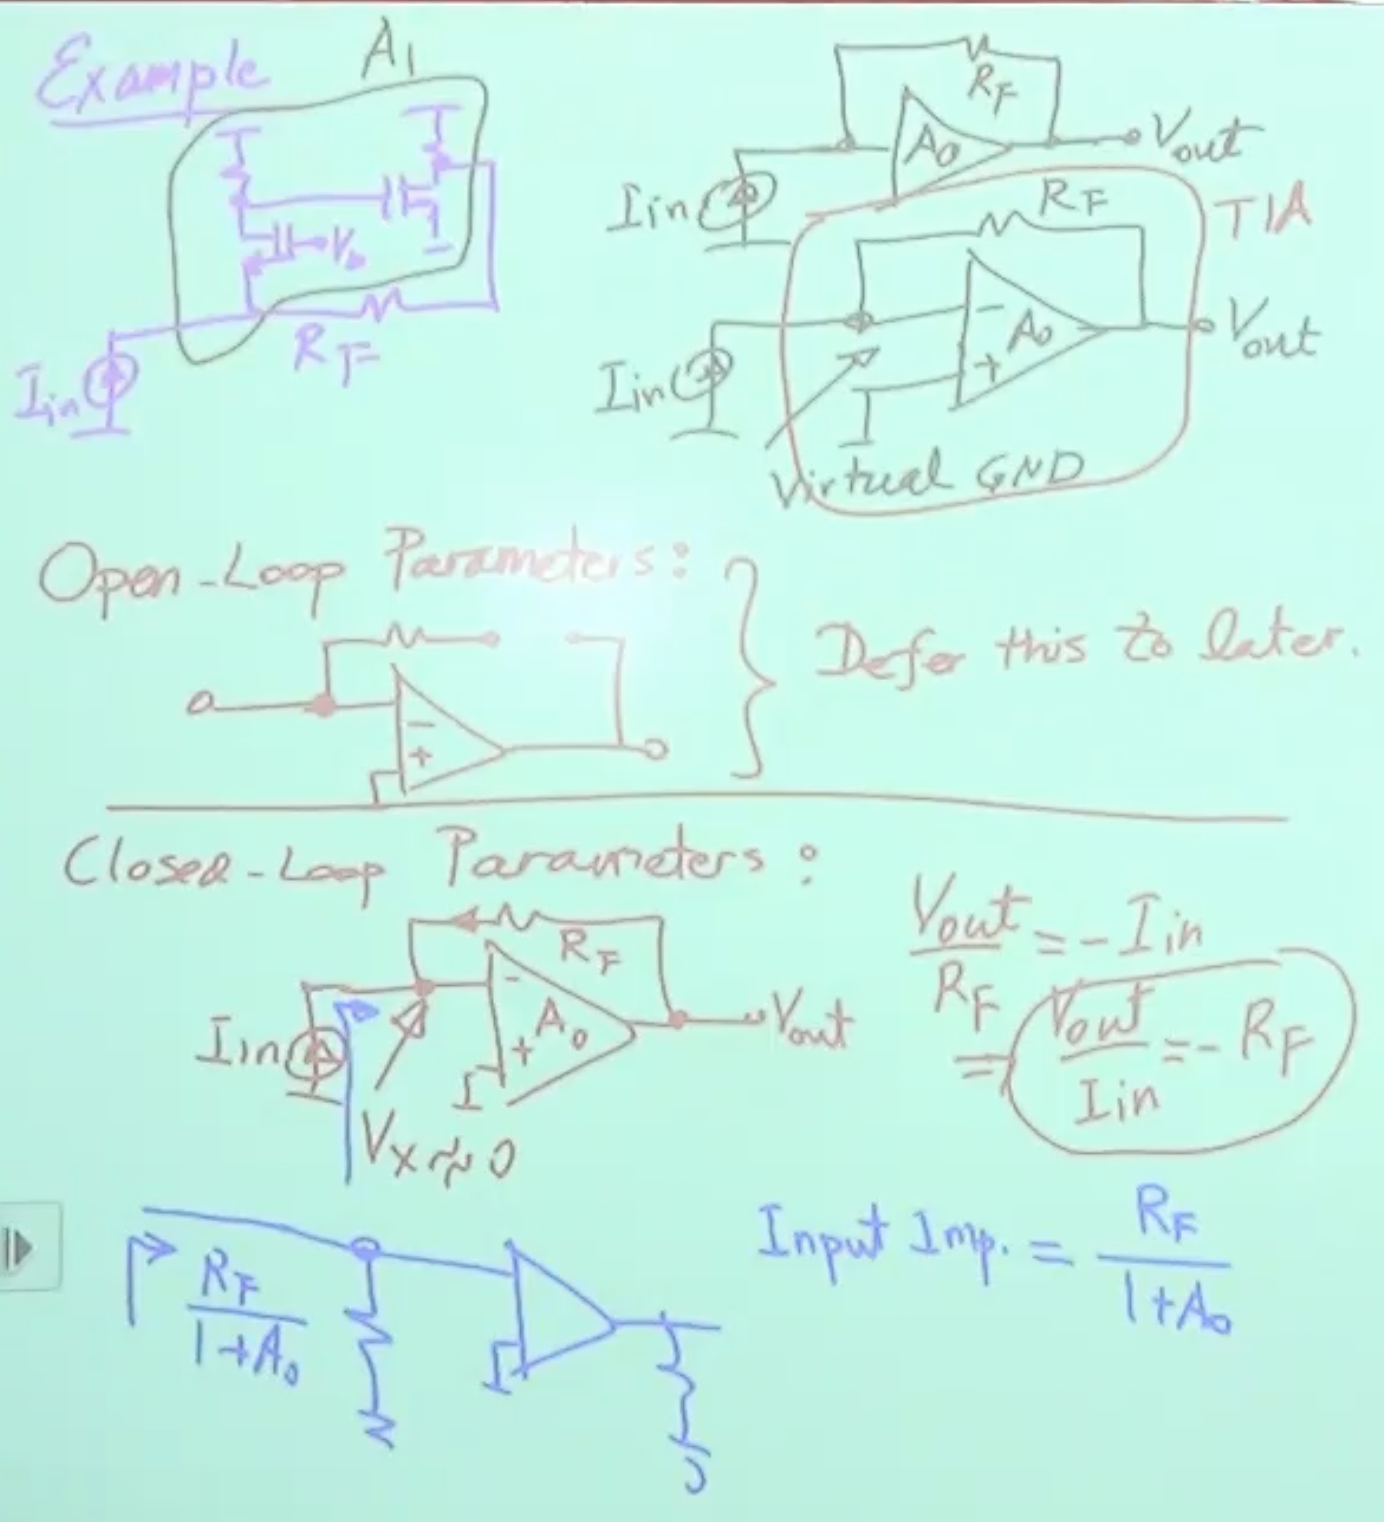 Example
A1
Vb
RF
Iin
RF
A0
Vout
Iin
TIA
RF
- A0
+
Vout
Iin
Virtual GND
Open-Loop Parameters:
Defer this to later.
-
+
Closed-Loop Parameters:
RF
-
A0
+
Vout
Iin
Vx ≈ 0
Vout/RF = - Iin
⇒ Vout/Iin = - RF
RF/(1+A0)
Input Imp. = RF/(1+A0)